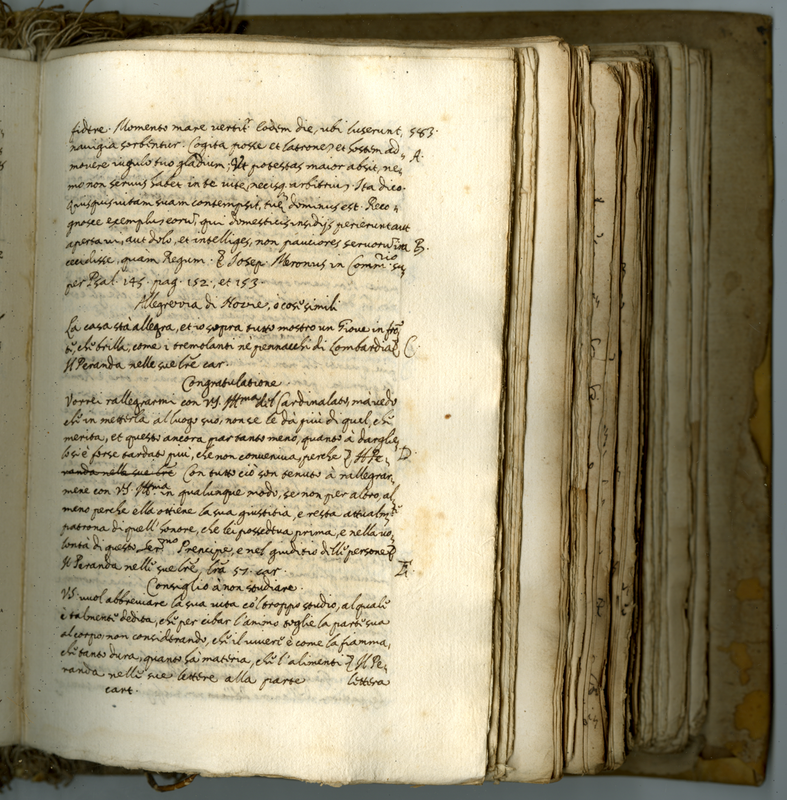 fidere. Momento mare vertit. Eodem die, ubi luserunt, 583.
navigia sorbentur. Cogita posse et latrone, et hostem ad=
movere iugulo tuo gladium; Ut potestas maior absit, ne= A.
mo non servus habet in te vitę, necisq. arbitriu, Ita dico.
Quisquis vitam suam contempsit, tuę dominus est. Reco=
gnosce exemplu eoru, qui domesticis insidijs perierunt aut
aperta vi, aut dolo, et intelliges, non pauciores servoru ira B.
cecidisse, quam Regum. Iosep. Meronus in Comm.rio
per Psal. 145. pag. 152. et 153.
Allegrezza di Nozze, ò cose simili
La casa stà allegra, et io sopra tutto mostro un Giove in fro
te, che brilla, come i tremolanti ne pennacchi di Lombardia C.
Il Peranda nelle sue lre car.
Congratulatione.
Vorrei rallegrarmi con VS. Illma del Cardinalato, mà vedo
che in metterla al luogo suo, non se le dà più di quel, che
merita, et questo ancora par tanto meno, quanto à darglie
lo si è forse tardato più, che non conveniva, perche Il Pe= D.
randa nelle sue lre Con tutto ciò son tenuto à rallegrar
mene con VS. Illma in qualunque modo, se non per altro, al
meno perche ella ottiene la sua giustitia, e resta attualm.te
patrona di quell'honore, che lei possedeva prima, e nella vo
lontà di questo Ser.mo Prencipe, e nel giuditio delle persone
Il Peranda nelle sue lre, lra 57. car. E.
Consiglio à non studiare.
VS. vuol abbreviare la sua vita co'l troppo studio, al quale
è talmente dedita, che per cibar l'animo toglie la parte sua
al corpo, non considerando, che il vivere è come la fiamma,
che tanto dura, quanto hà materia, che l'alimenti Il Pe=
randa nelle sue lettere alla parte lettera
cart.